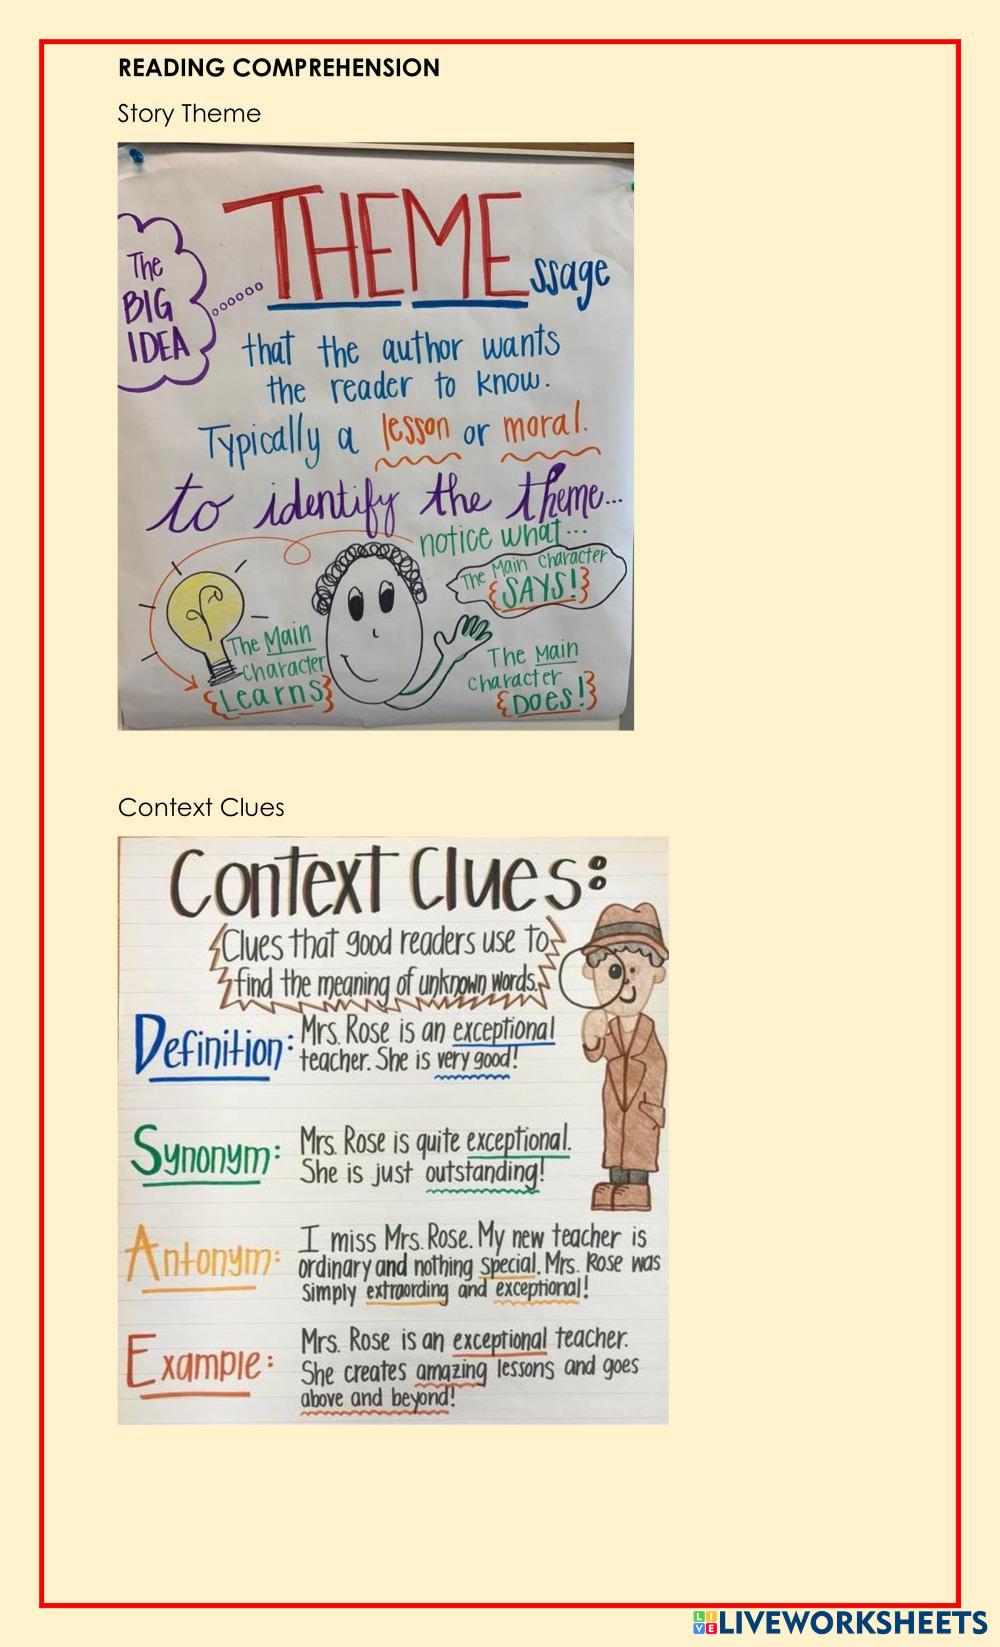 READING COMPREHENSION
Story Theme
The
BIG
IDEA
THEMEssage
that the author wants
the reader to know.
Typically a lesson or moral.
to identify the theme...
notice what...
The Main Character
{SAYS!}
The Main
Character
{Learns}
The Main
character
{Does!}
Context Clues
Context Clues:
Clues that good readers use to
find the meaning of unknown words.
Definition: Mrs. Rose is an exceptional
teacher. She is very good!
Synonym: Mrs. Rose is quite exceptional.
She is just outstanding!
Antonym: I miss Mrs. Rose. My new teacher is
ordinary and nothing special. Mrs. Rose was
simply extraording and exceptional!
Example: Mrs. Rose is an exceptional teacher.
She creates amazing lessons and goes
above and beyond!
LIVE LIVEWORKSHEETS